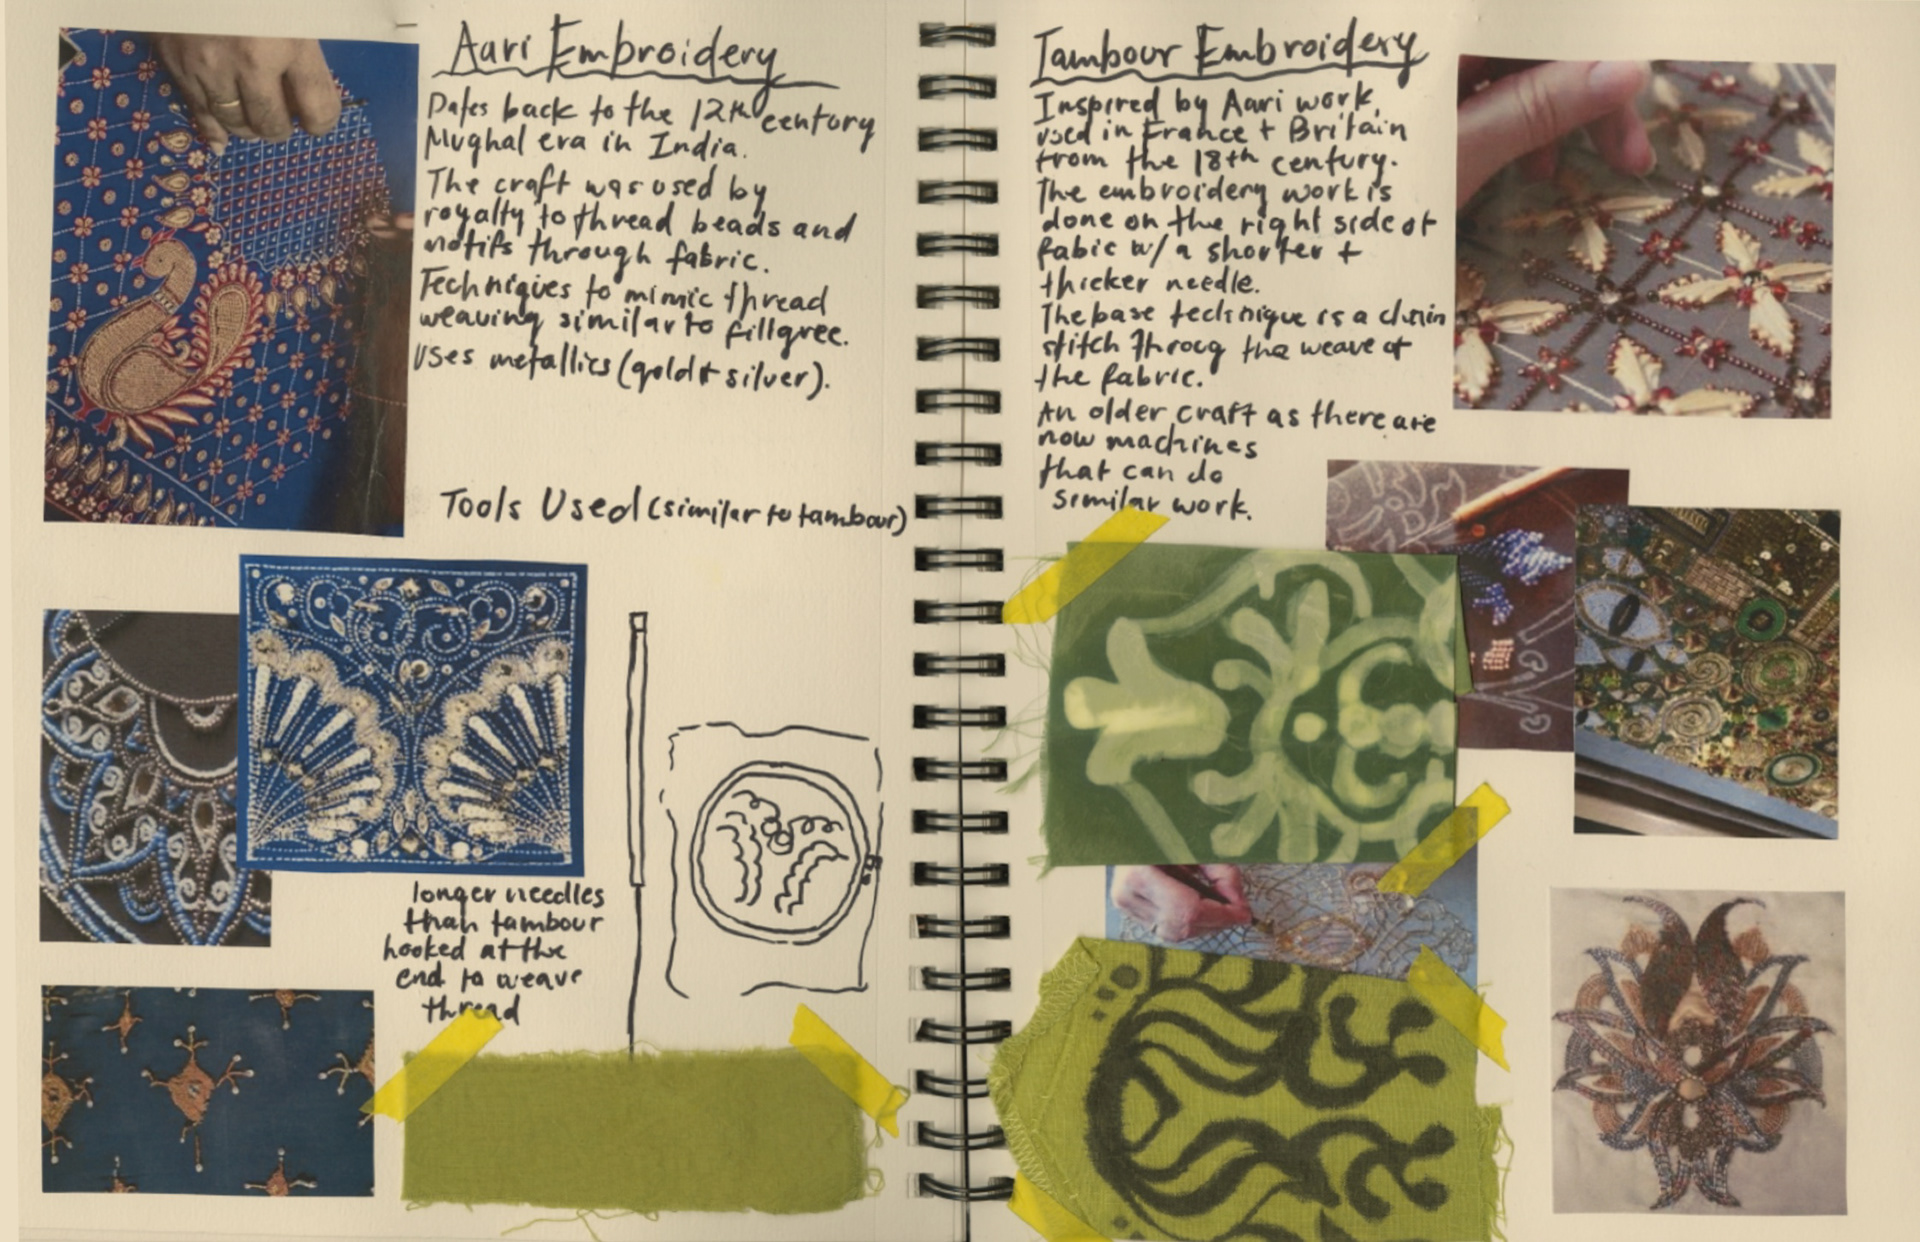 Aari Embroidery
Dates back to the 12th century
Mughal era in India.
The craft was used by
royalty to thread beads and
motifs through fabric.
Techniques to mimic thread
weaving similar to fillgree.
Uses metallics (gold + silver).
Tools Used (similar to tambour)
longer needles
than tambour
hooked at the
end to weave
thread
Tambour Embroidery
Inspired by Aari work,
used in France + Britain
from the 18th century.
The embroidery work is
done on the right side of
fabic w/ a shorter +
thicker needle.
The base technique is a chain
stitch throug the weave of
the fabric.
An older craft as there are
now machines
that can do
similar work.